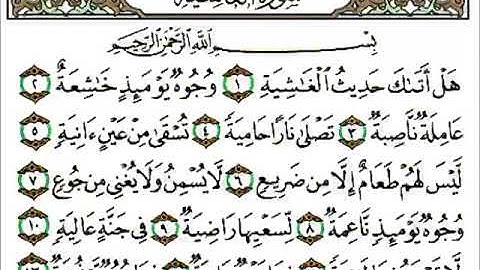 بِسْمِ ٱللَّهِ ٱلرَّحْمَٰنِ ٱلرَّحِيمِ
هَلْ أَتَىٰكَ حَدِيثُ ٱلْغَٰشِيَةِ ١ وُجُوهٌ يَوْمَئِذٍ خَٰشِعَةٌ ٢
عَامِلَةٌ نَّاصِبَةٌ ٣ تَصْلَىٰ نَارًا حَامِيَةً ٤ تُسْقَىٰ مِنْ عَيْنٍ ءَانِيَةٍ ٥
لَّيْسَ لَهُمْ طَعَامٌ إِلَّا مِن ضَرِيعٍ ٦ لَّا يُسْمِنُ وَلَا يُغْنِي مِن جُوعٍ ٧
وُجُوهٌ يَوْمَئِذٍ نَّاعِمَةٌ ٨ لِّسَعْيِهَا رَاضِيَةٌ ٩ فِي جَنَّةٍ عَالِيَةٍ ١٠